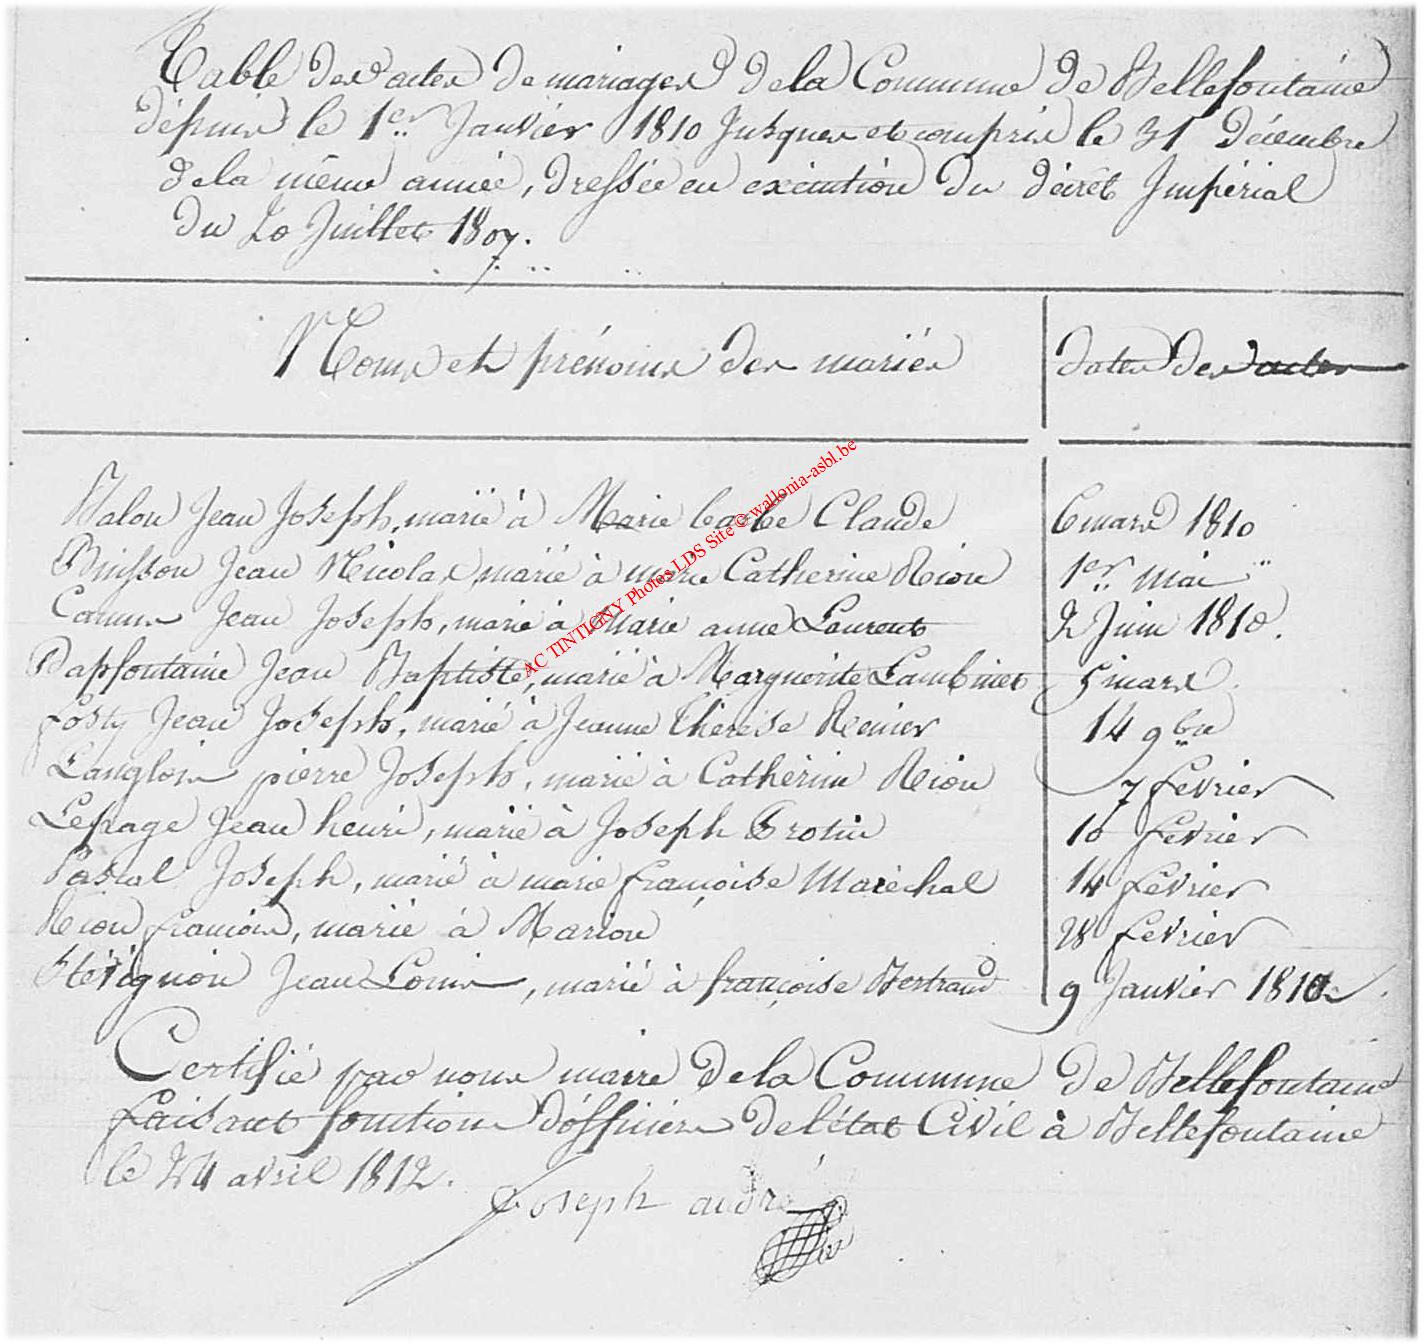 Table des actes de mariages de la Commune de Bellefontaine
dépuis le 1er Janvier 1810 Jusques et compris le 31 Décembre
de la même année, dressée en exécution du décrêt Impérial
du 20 Juillet 1807.
Noms et prénoms des mariés
dates des actes
Jean Joseph, marié à Marie barbe Claude
6 mars 1810
Buisson Jean Nicolas marié à marie Catherine Rion
1er mai
Jean Joseph, marié à Marie anne Laurent
2 Juin 1810.
Dapfontaine Jean Baptiste, marié à Marguerite Lambinet
5 mars
Fosty Jean Joseph, marié à Jeanne Thérèse Renier
14 9bre
Langlois pierre Joseph, marié à Cathérine Rion
7 février
Lepage Jean henri, marié à Joseph Grotin
10 février
Pascal Joseph, marié à marie françoise Maréchal
14 février
Rion françois, marié à Marion
28 février
Jean Louis, marié à françoise Bertrand
9 Janvier 1810
Certifié par nous maire de la Commune de Bellefontaine
faisant fonctions d'officier de l'état Civil à Bellefontaine
le 24 avril 1812.
Joseph andré
AC TINTIGNY Photos LDS Site © wallonia-asbl.be